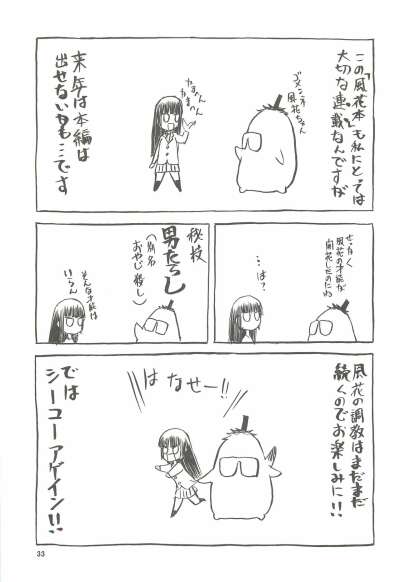 この「風花本」も私にとっては
大切な連載なんですが
ゴメンネ
風花ちゃん
来年は本編は
出せないかも…です
せっかく
風花の才能が
開花したのにね
…は？
秘技
男たらし
(別名
おやじ殺し)
そんな才能は
いらん
風花の調教はまだまだ
続くのでお楽しみに!!
はなせー!!
では
シーユーアゲイン!!
33